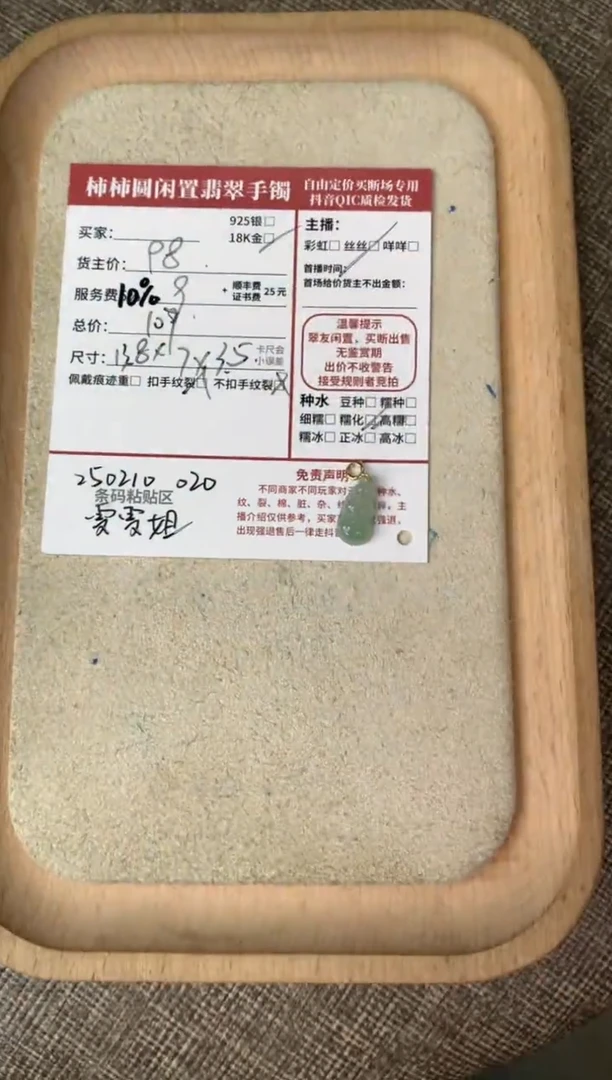 柿柿圆闲置翡翠手镯
自由定价买断场专用
抖音QIC质检发货
买家：
925银□
18K金□
货主价：98
服务费10% 9 + 顺丰费 证书费 25元
总价：107
尺寸：13.8×7×3.5 卡尺会小误差
佩戴痕迹重□ 扣手纹裂□ 不扣手纹裂□
主播：
彩虹□ 丝丝□ 咩咩□
首播时间：
首场给价货主不出金额：
温馨提示
翠友闲置，买断出售
无鉴赏期
出价不收警告
接受规则者竞拍
种水 豆种□ 糯种□
细糯□ 糯化□ 高糯□
糯冰□ 正冰□ 高冰□
250210 020
条码粘贴区
雯雯姐
免责声明
不同商家不同玩家对 种水、
纹、裂、棉、脏、杂、 主
播介绍仅供参考，买家 强退，
出现强退售后一律走抖